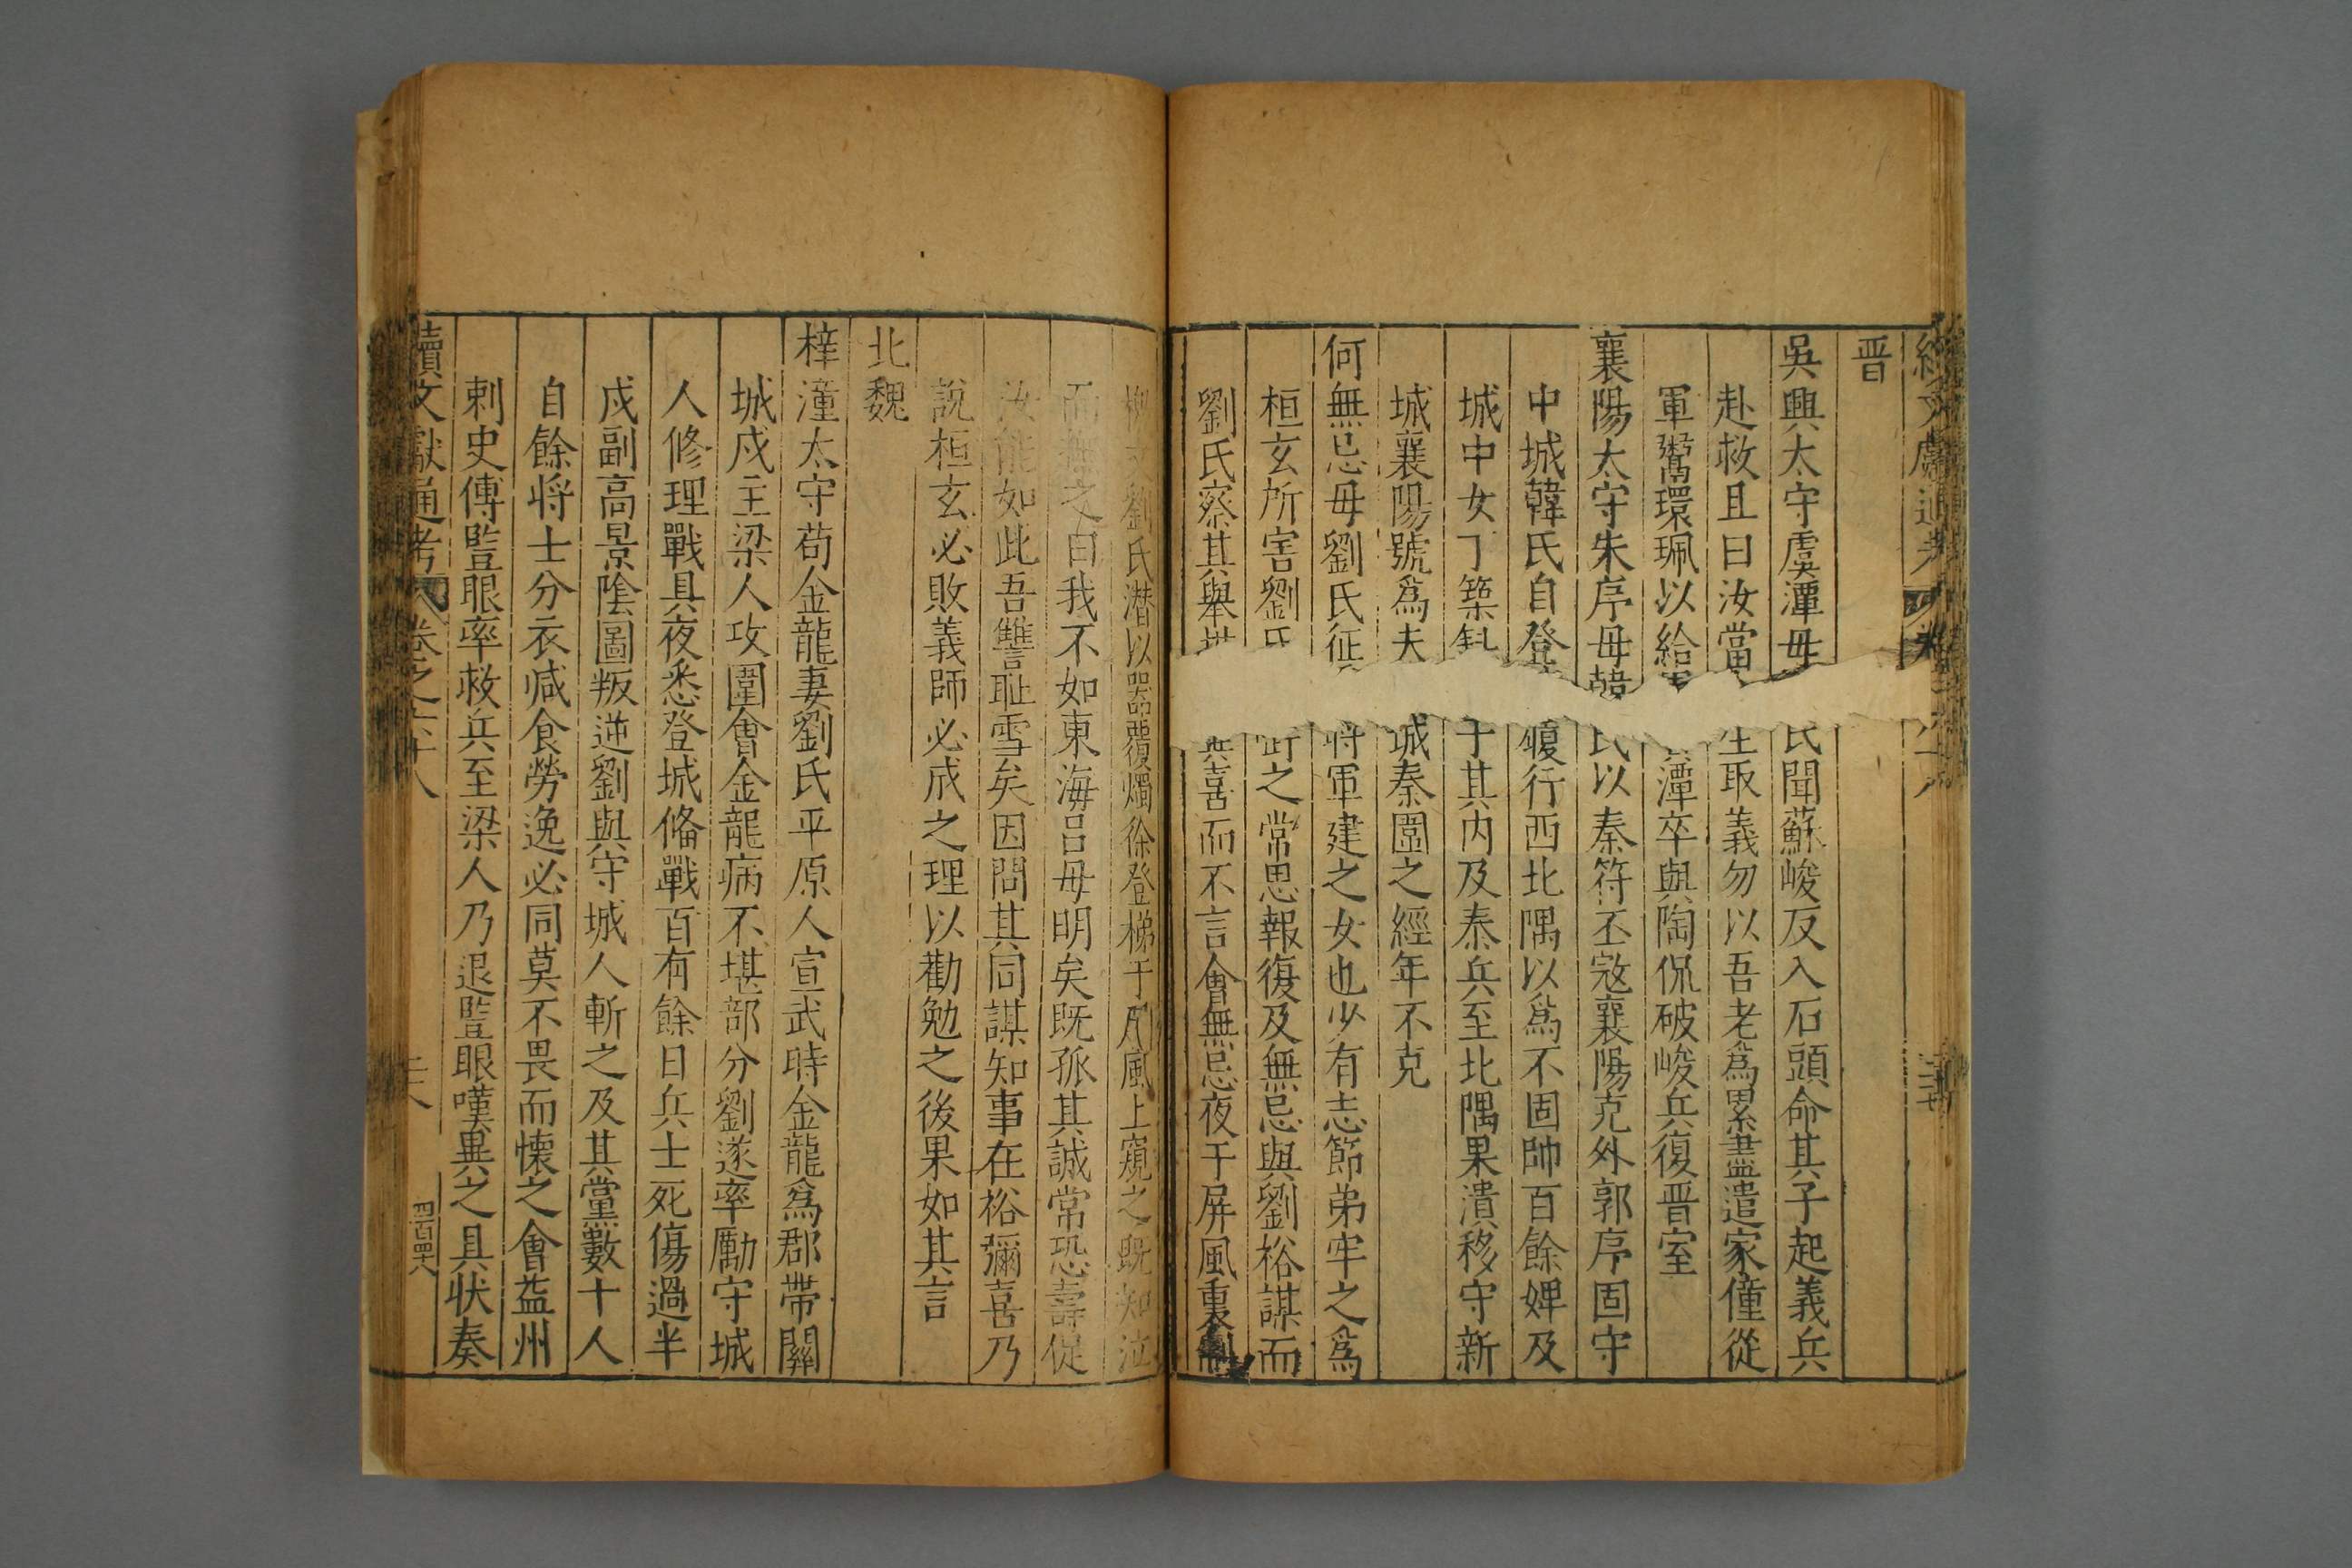 晋
吳興太守虞潭毋氏聞蘇峻反入石頭命其子起義兵
赴救且曰汝當生取義勿以吾老爲累盡遣家僮從
軍鬻環珮以給潭卒與陶侃破峻兵復晋室
襄陽太守朱序毋韓氏以秦符丕寇襄陽克外郭序固守
中城韓氏自登履行西北隅以爲不固帥百餘婢及
城中女丁築于其内及秦兵至北隅果潰移守新
城襄陽號爲夫城秦圍之經年不克
何無忌毋劉氏征將軍建之女也少有志節弟牢之爲
桓玄所害劉氏之常思報復及無忌與劉裕謀而
劉氏察其舉喜而不言會無忌夜于屏風裏
劉氏潜以器覆燭徐登梯于屏風上窺之既知泣
而撫之曰我不如東海吕毋明矣既孤其誠常恐壽促
汝能如此吾讐耻雪矣因問其同謀知事在裕彌喜乃
說桓玄必敗義師必成之理以勸勉之後果如其言
北魏
梓潼太守苟金龍妻劉氏平原人宣武時金龍爲郡帶關
城戍主梁人攻圍會金龍病不堪部分劉遂率勵守城
人修理戰具夜悉登城俻戰百有餘日兵士死傷過半
戍副高景陰圖叛逆劉與守城人斬之及其黨數十人
自餘将士分衣减食勞逸必同莫不畏而懐之會益州
刺史傅竪眼率救兵至梁人乃退竪眼嘆異之具状奏
續文獻通考 卷之六十八 二十八 四百四十八